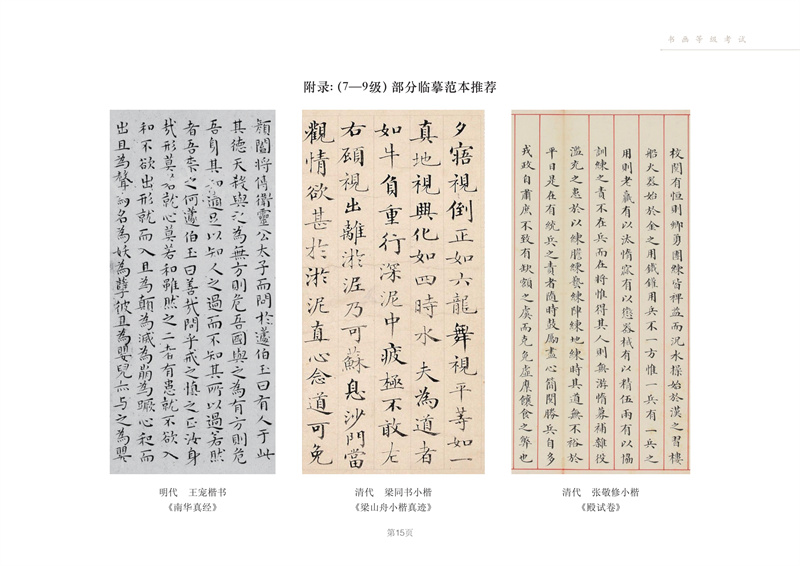 书画等级考试
附录:(7—9级)部分临摹范本推荐
顏闔將傅衛靈公太子而問於蘧伯玉曰有人于此
其德天殺與之為無方則危吾國與之為有方則危
吾身其知適足以知人之過而不知其所以過若然
者吾柰之何蘧伯玉曰善哉問乎戒之慎之正汝身
哉形莫如就心莫若和雖然之二者有患就不欲入
和不欲出形就而入且為顛為滅為崩為蹶心和而
出且為聲為名為妖為孽彼且為嬰兒亦与之為嬰
夕寤視倒正如六龍舞視平等如一
真地視興化如四時水 夫為道者
如牛負重行深泥中疲極不敢左
右顧視出離淤泥乃可蘇息沙門當
觀情欲甚於淤泥直心念道可免
校閱有恒則鄉勇團練皆裨益而況水操始於漢之習樓
船火器始於金之用鐵鎗用兵不一方惟一兵有一兵之
用則老羸有以汰惰窳有以懲器械有以精伍兩有以協
訓練之責不在兵而在將惟得其人則無游惰募補雜役
濫充之患於以練膽練藝練陣練地練時其道無不裕於
平日是在有統兵之責者隨時鼓勵盡心簡閱勝兵自多
戎政自肅庶不致有缺額之虞而克免虛糜饟食之弊也
明代 王宠楷书
《南华真经》
清代 梁同书小楷
《梁山舟小楷真迹》
清代 张敬修小楷
《殿试卷》
第15页